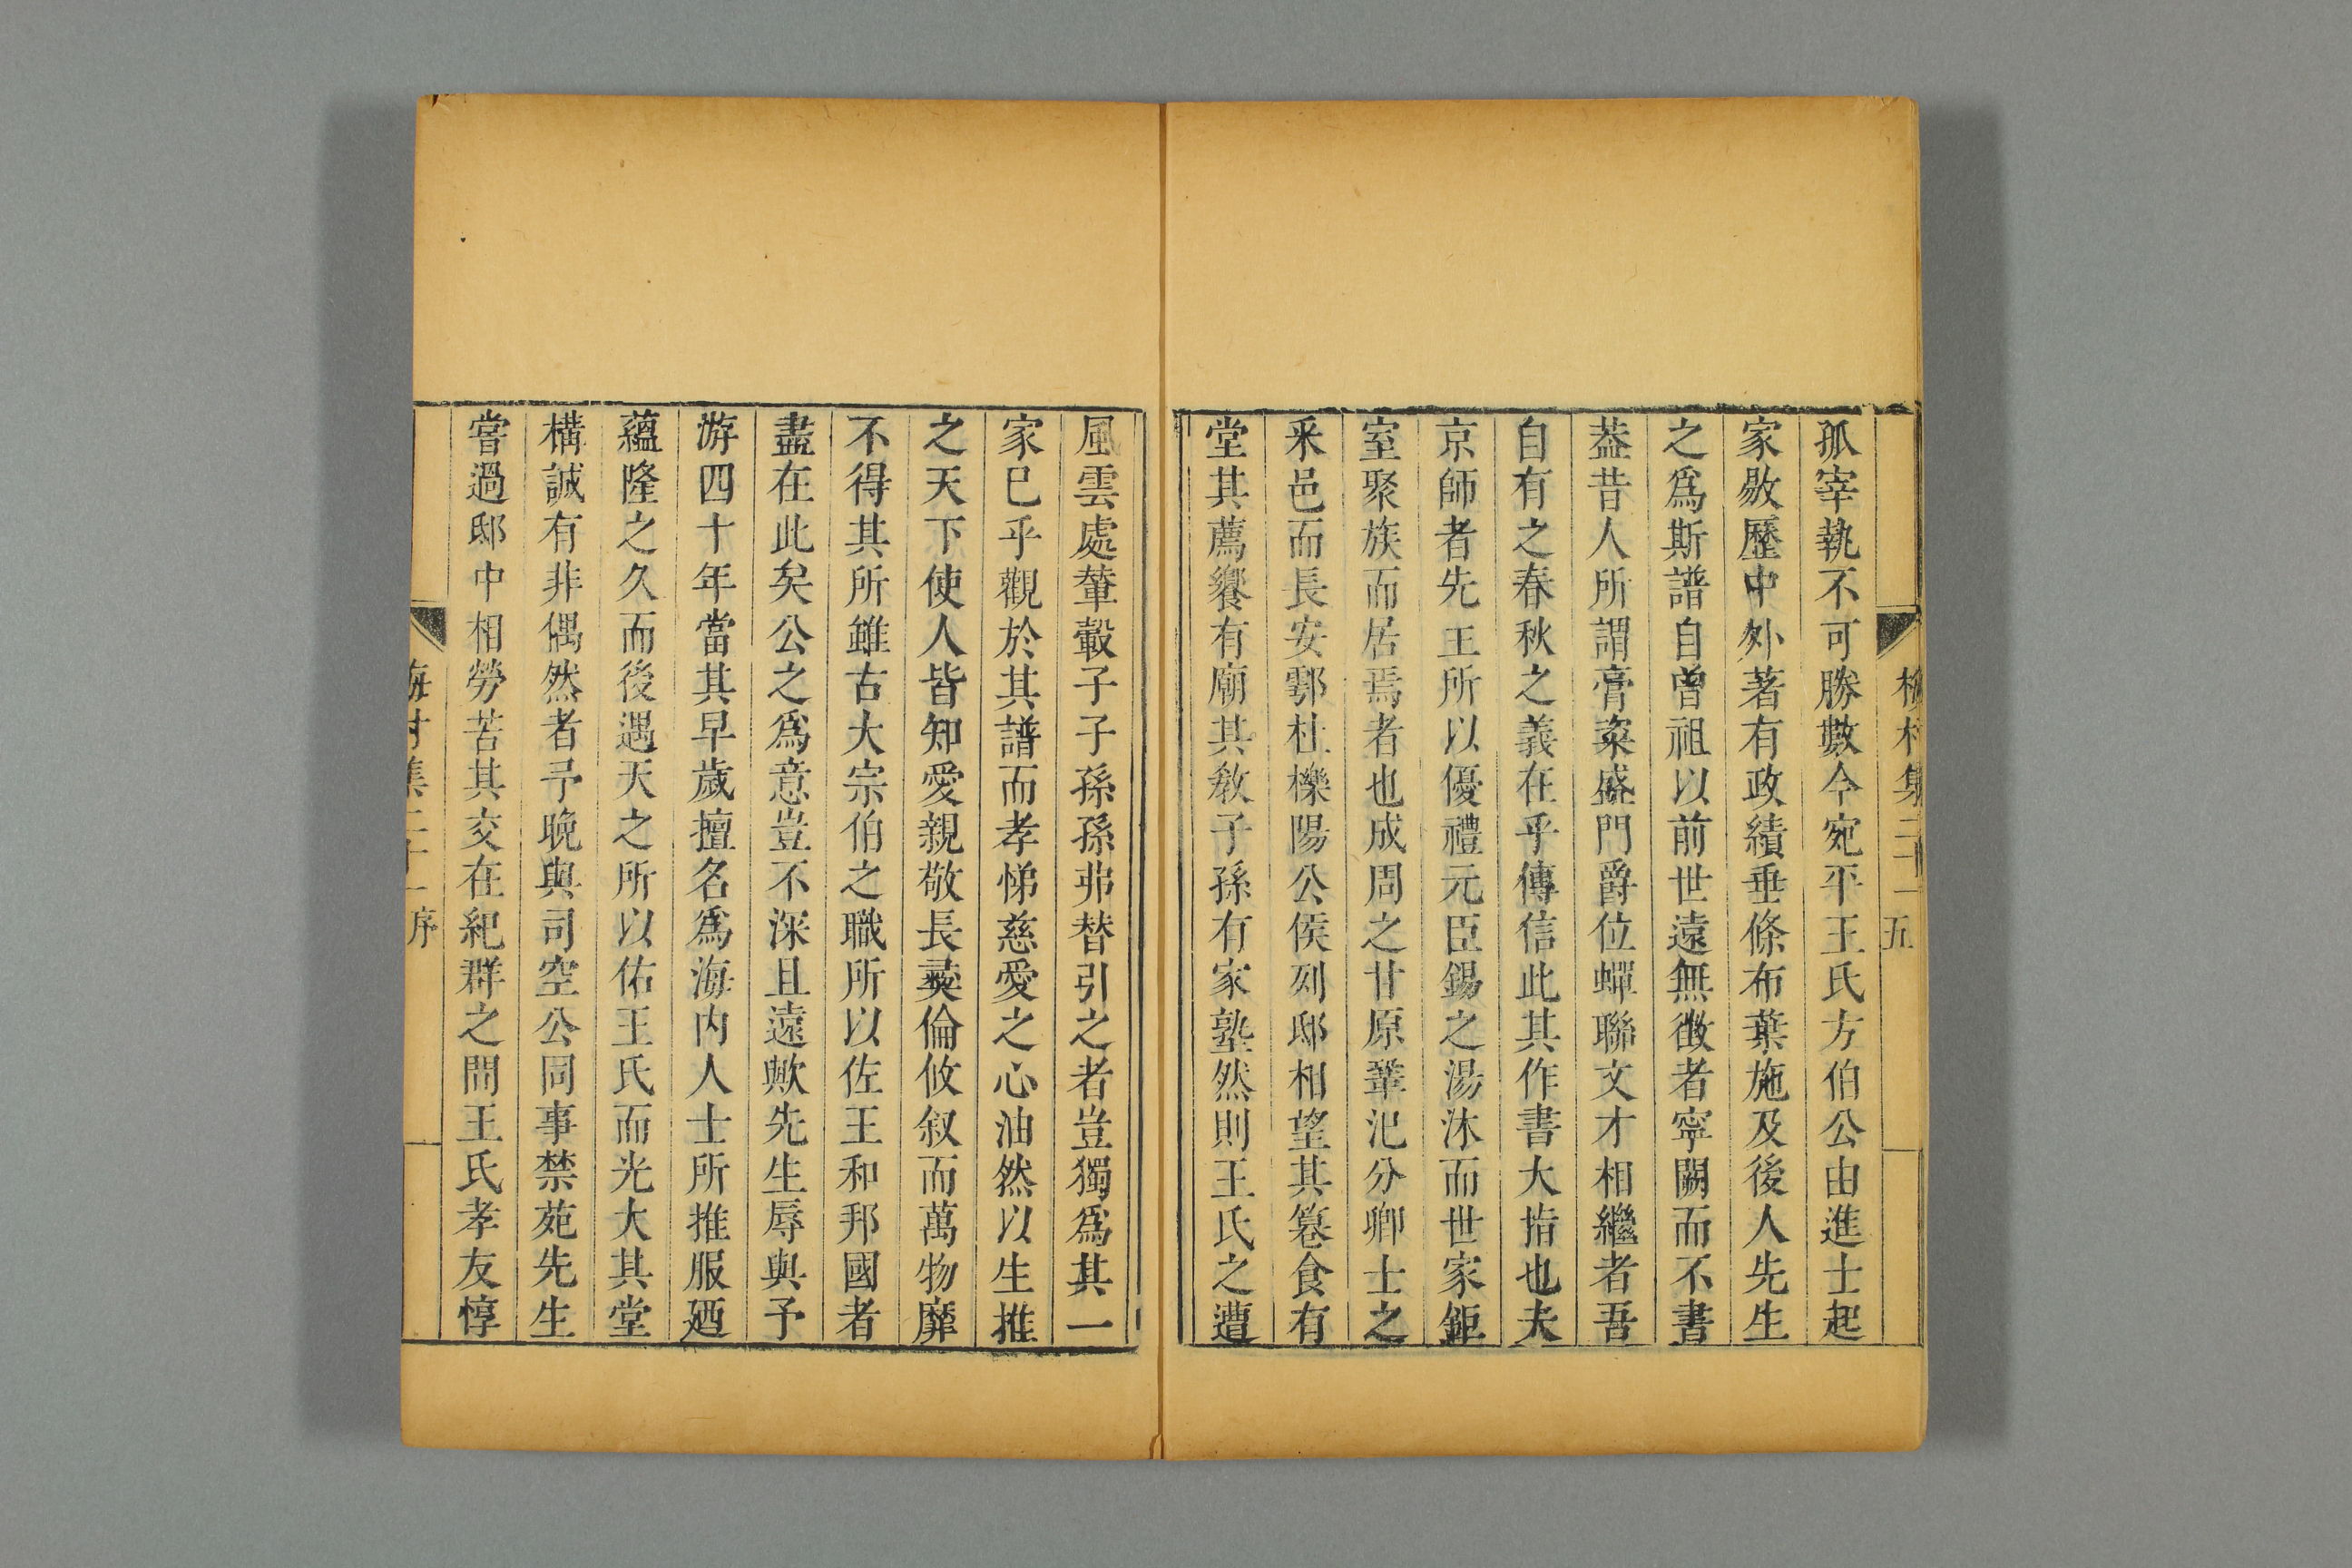 五
孤宰執不可勝數今宛平王氏方伯公由進士起
家敭歷中外著有政績垂條布葉施及後人先生
之爲斯譜自曾祖以前世遠無徵者寧闕而不書
葢昔人所謂膏粱盛門爵位蟬聯文才相繼者吾
自有之春秋之義在乎傳信此其作書大指也夫
京師者先王所以優禮元臣錫之湯沐而世家鉅
室聚族而居焉者也成周之甘原鞏汜分卿士之
采邑而長安鄠杜櫟陽公侯列邸相望其簒食有
堂其薦饗有廟其敎子孫有家塾然則王氏之遭
風雲處輦轂子子孫孫弗替引之者豈獨爲其一
家巳乎觀於其譜而孝悌慈愛之心油然以生推
之天下使人皆知愛親敬長彛倫攸叙而萬物靡
不得其所雖古大宗伯之職所以佐王和邦國者
盡在此矣公之爲意豈不深且遠歟先生辱與予
游四十年當其早歲擅名爲海内人士所推服廼
蘊隆之久而後遇天之所以佑王氏而光大其堂
構誠有非偶然者予晩與司空公同事禁苑先生
嘗過邸中相勞苦其交在紀群之間王氏孝友惇
序